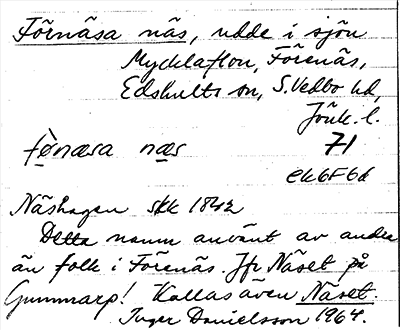 Förnäsa näs, udde i sjön
Mycklaflon, Förenäs,
Edshults sn, S. Vedbo hd,
Jönk. l.
fø̱næsa næ̱s 71
ek6F6d
Näshagen skk 1842
Detta namn använt av andra
än folk i Förenäs. Jfr Näset på
Gummarp! Kallas även Näset.
Inger Danielsson 1964.